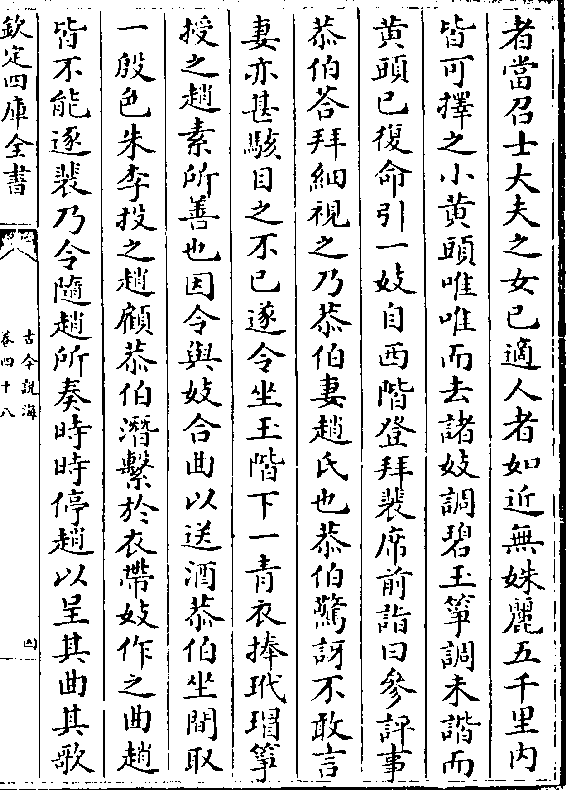 者當召士大夫之女已適人者如近無姝麗五千里内
皆可擇之小黄頭唯唯而去諸妓調碧玉箏調未諧而
黄頭已復命引一妓自西階登拜裴席前詣曰參評事
恭伯荅拜細視之乃恭伯妻趙氏也恭伯驚訝不敢言
妻亦甚駭目之不已遂令坐玉階下一青衣捧玳瑁箏
授之趙素所善也因令與妓合曲以送酒恭伯坐間取
一殷色朱李投之趙顧恭伯潛繫於衣帶妓作之曲趙
皆不能逐裴乃令隨趙所奏時時停趙以呈其曲其歌
欽定四庫全書
古今說海
卷四十八
四